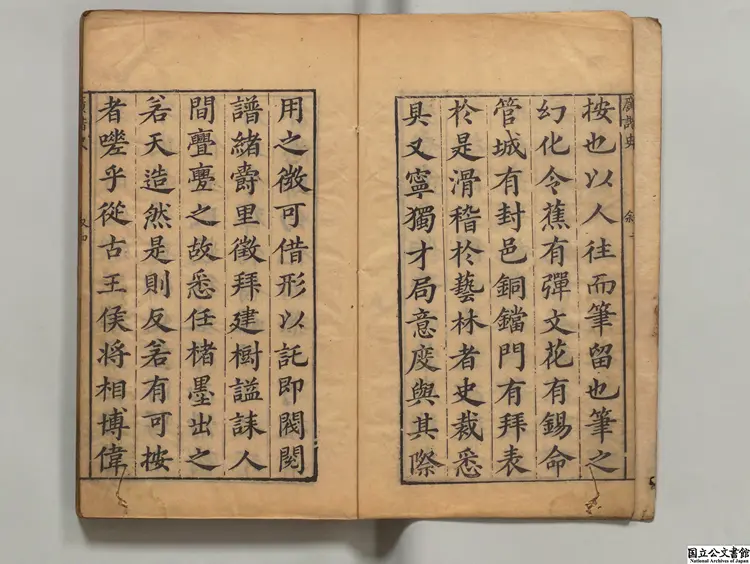 廣諧史 敘
按也以人往而筆留也筆之
幻化令蕉有彈文花有錫命
管城有封邑銅鐺門有拜表
於是滑稽於藝林者史裁悉
具又寧獨才局意度與其際
用之微可借形以託即閥閱
譜緒爵里徵拜建樹謚誄人
間亹亹之故悉任楮墨出之
若天造然是則反若有可按
者嗟乎從古王侯将相博偉
国立公文書館
National Archives of Japan